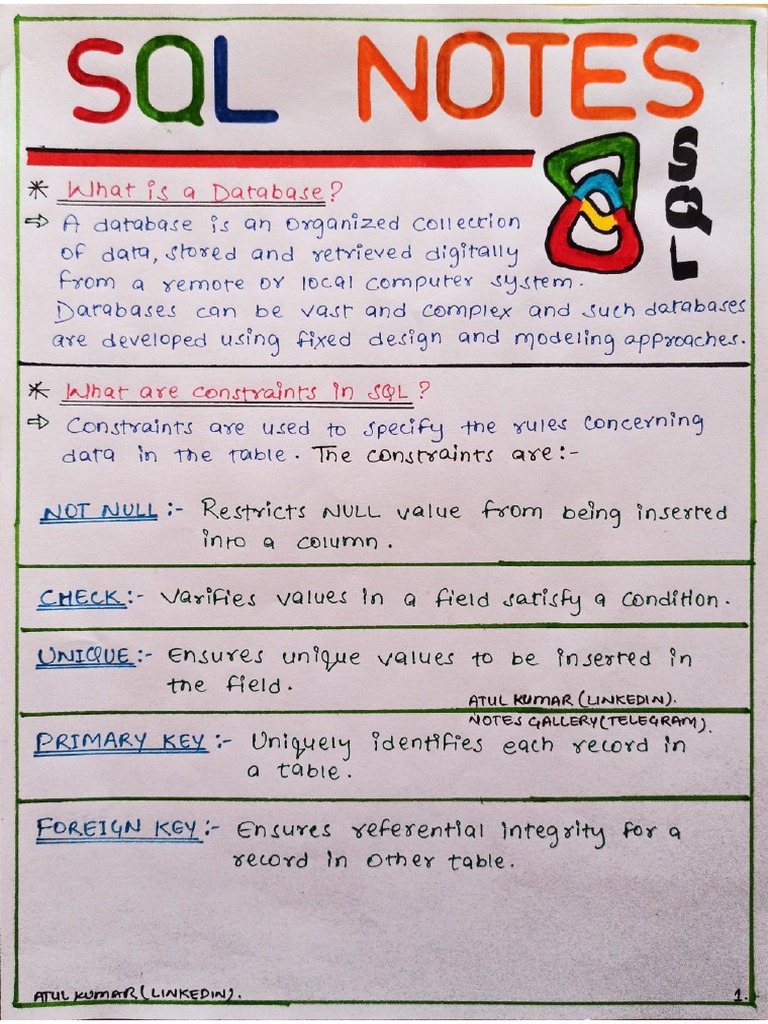 SQL NOTES
SQL
* What is a Database?
⇒ A database is an organized collection
of data, stored and retrieved digitally
from a remote or local computer system.
Databases can be vast and complex and such databases
are developed using fixed design and modeling approaches.
* What are constraints in SQL?
⇒ Constraints are used to specify the rules concerning
data in the table. The constraints are:-
NOT NULL:- Restricts NULL value from being inserted
into a column.
CHECK:- Varifies values in a field satisfy a condition.
UNIQUE:- Ensures unique values to be inserted in
the field.
ATUL KUMAR (LINKEDIN).
NOTES GALLERY (TELEGRAM).
PRIMARY KEY:- Uniquely identifies each record in
a table.
FOREIGN KEY:- Ensures referential integrity for a
record in other table.
ATUL KUMAR (LINKEDIN).
1.